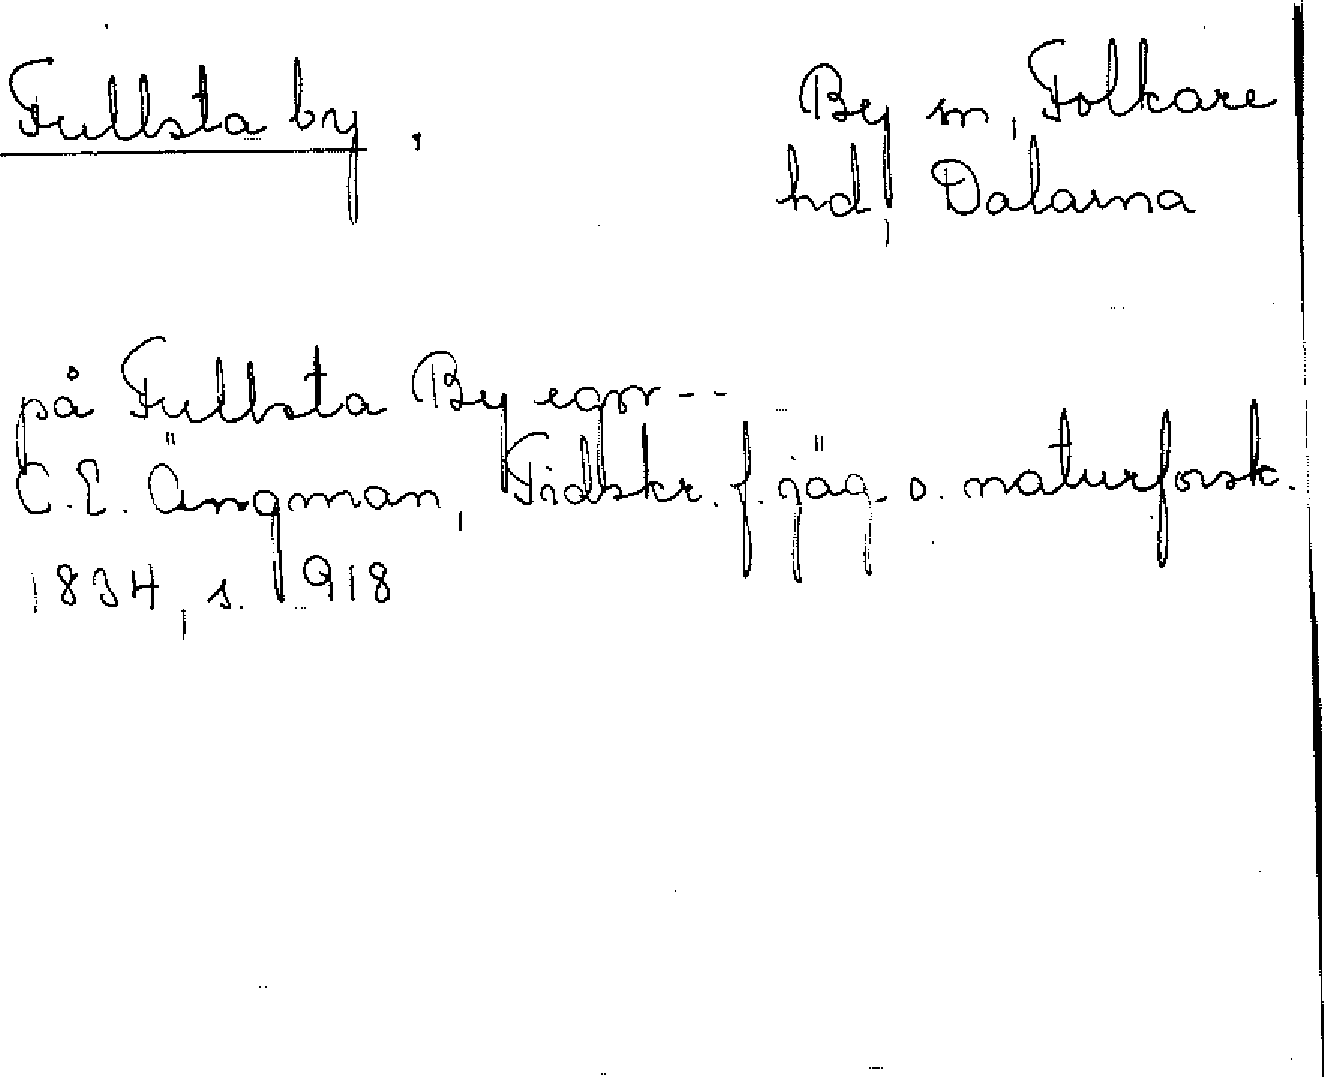 Fullsta by.
By sn, Folkare
hd, Dalarna
på Fullsta By egor --
C.E. Ängman, Tidskr. f. jäg. o. naturforsk.
1834, s. 918